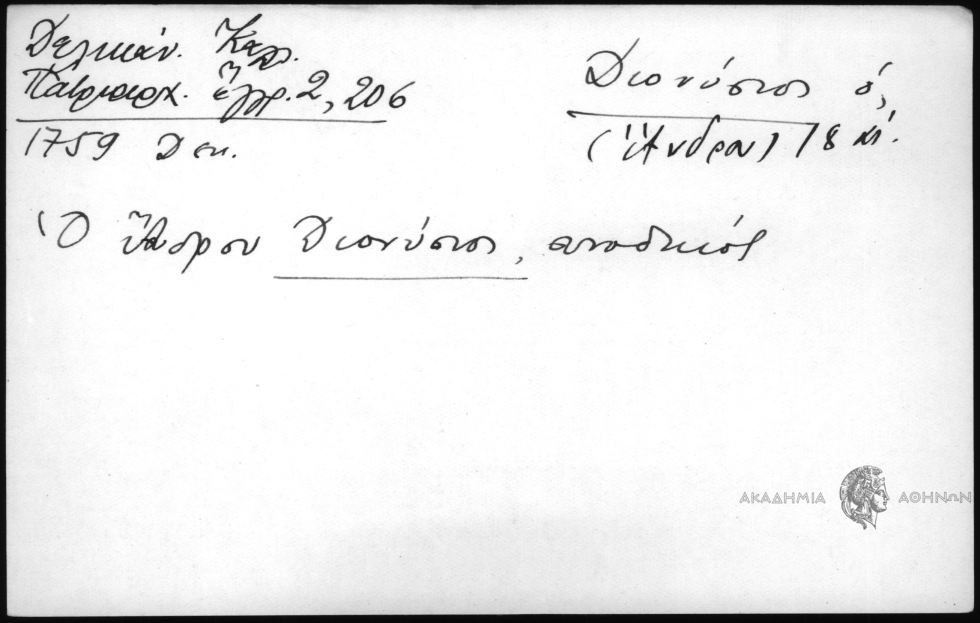 Δελικάν. Καλ.
Πατριαρχ. ἔγγρ. 2, 206
1759 Δεκ.
Διονύσιος ὁ,
(Ἄνδρου) 18 αἰ.
Ὁ Ἄνδρου Διονύσιος,
ΑΚΑΔΗΜΙΑ ΑΘΗΝΩΝ